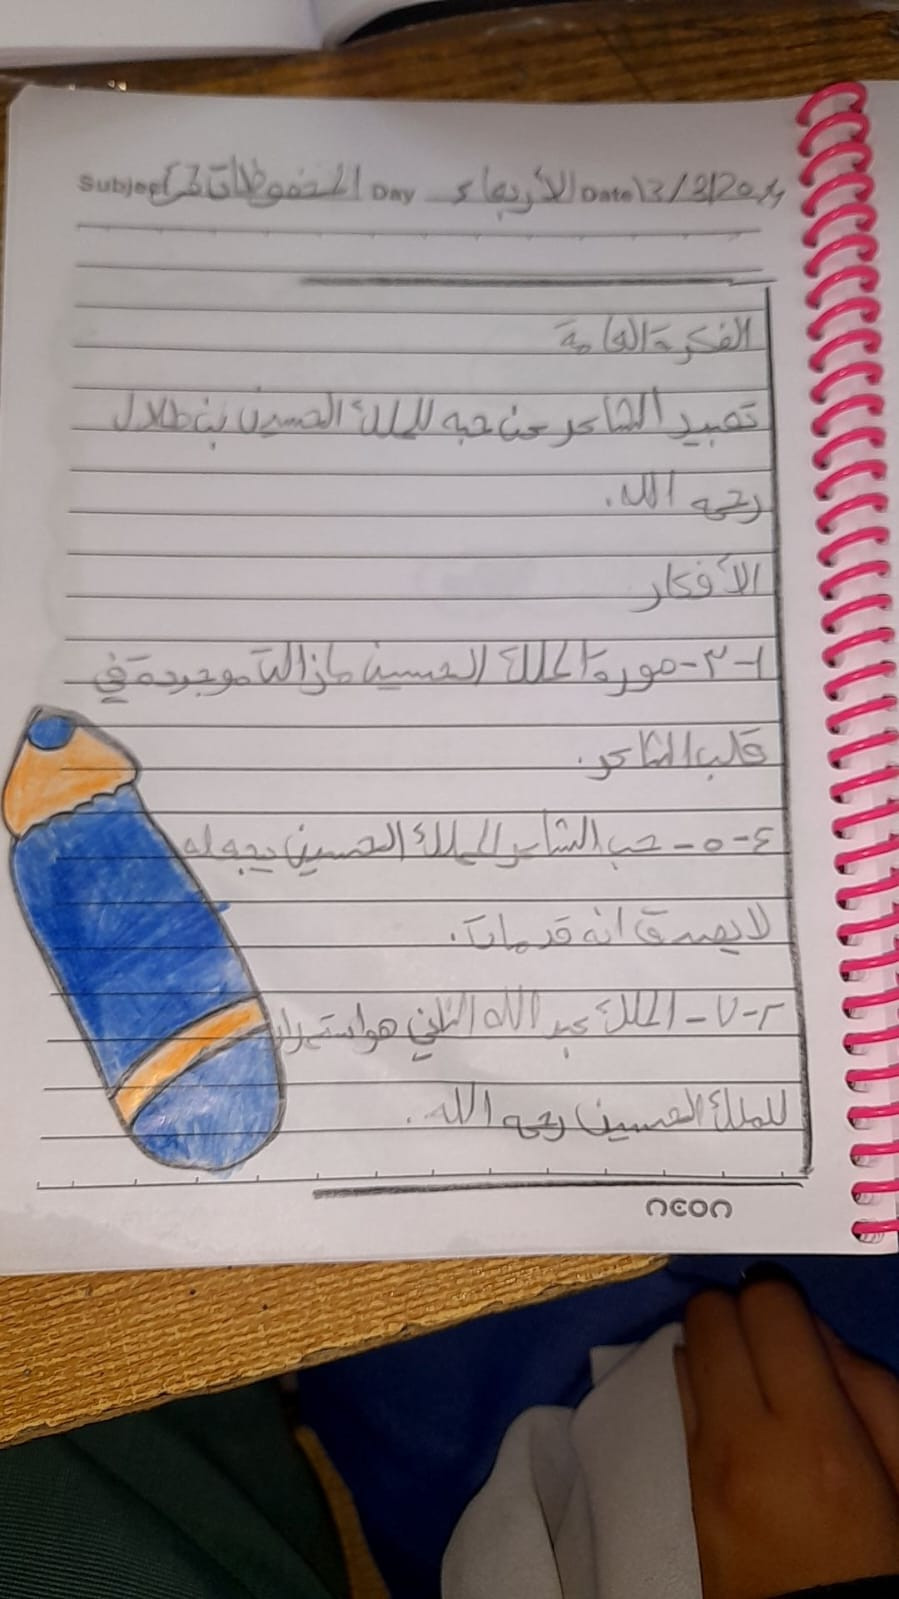 Subject المحفوظات Day الأربعاء Date 13/3/2024
الفكرة العامة
تعبير الشاعر عن حبه للملك الحسين بن طلال
رحمه الله.
الأفكار
١-٣- صورة الملك الحسين مازالت موجودة في
قلب الشاعر.
٤-٥- حب الشاعر للملك الحسين يجعله
لا يصدق انه قد مات.
٦-٧- الملك عبد الله الثاني هو استمرار
للملك الحسين رحمه الله.
neon